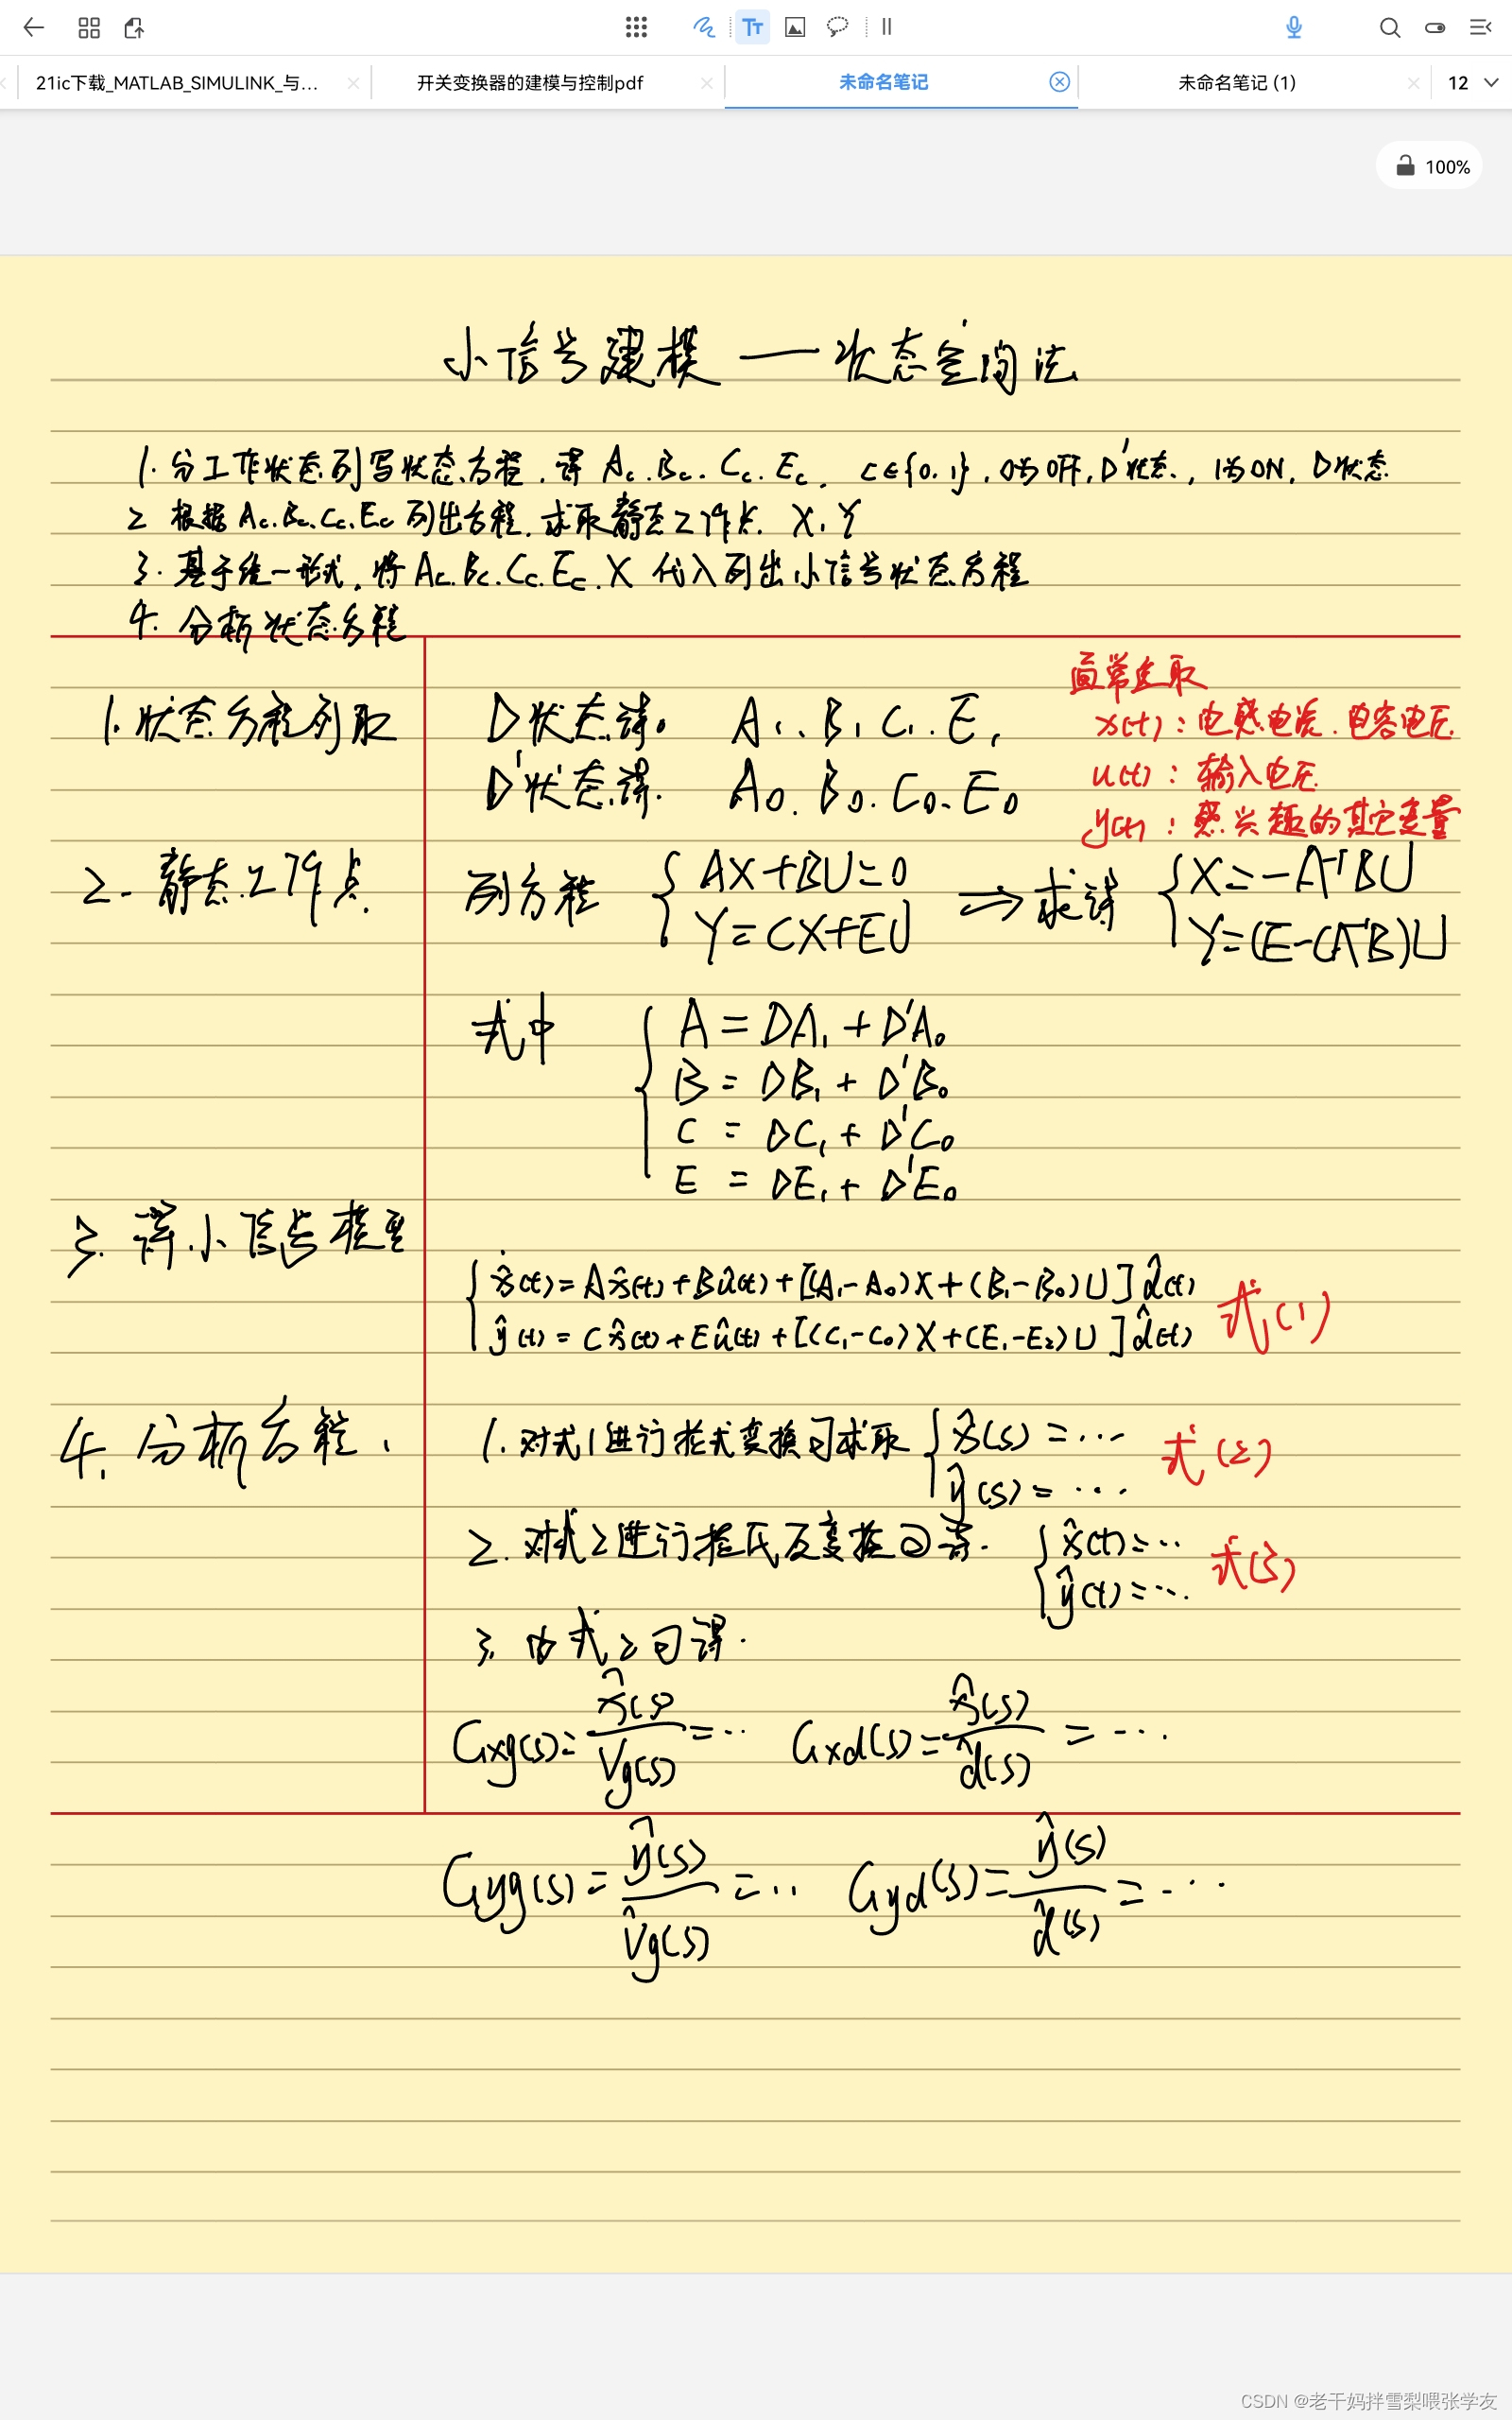 21ic下载_MATLAB_SIMULINK_与... 开关变换器的建模与控制pdf 未命名笔记 未命名笔记 (1) 12
100%
小信号建模——状态空间法
1. 分工作状态列写状态方程,得 Ac.Bc.Cc.Ec, c∈{0.1},0为OFF,D'状态,1为ON,D状态
2 根据 Ac.Bc.Cc.Ec 列出方程.求取静态工作点. X,Y
3. 基于统一形式,将 Ac.Bc.Cc.Ec.X 代入列出小信号状态方程
4. 分析状态方程
通常选取
1.状态方程列取 D状态得。 A1.B1 C1.E1
x(t):电感电流.电容电压
D'状态得. A0.B0.C0.E0
u(t):输入电压
y(t):感兴趣的其它变量
2.静态工作点. 列方程 { AX+BU=0 ⇒求得 { X=-A⁻¹BU
Y=CX+EU Y=(E-CA⁻¹B)U
式中 { A = DA1 + D'A0
B = DB1 + D'B0
C = DC1 + D'C0
E = DE1 + D'E0
3. 得小信号模型
{ x̂̇(t)=Ax̂(t)+Bû(t)+[(A1-A0)X+(B1-B0)U]d̂(t)
ŷ(t)=Cx̂(t)+Eû(t)+[(C1-C0)X+(E1-E2)U]d̂(t) 式(1)
4. 分析方程. 1. 对式1进行拉式变换可求取 { x̂(s)=... 式(2)
ŷ(s)=...
2. 对式2进行拉氏反变换可得. { x̂(t)=... 式(3)
ŷ(t)=...
3. 由式2可得.
Gxg(s)=x̂(s)/Vg(s)=... Gxd(s)=x̂(s)/d̂(s)=...
Gyg(s)=ŷ(s)/V̂g(s)=... Gyd(s)=ŷ(s)/d̂(s)=...
CSDN @老干妈拌雪梨喂张学友